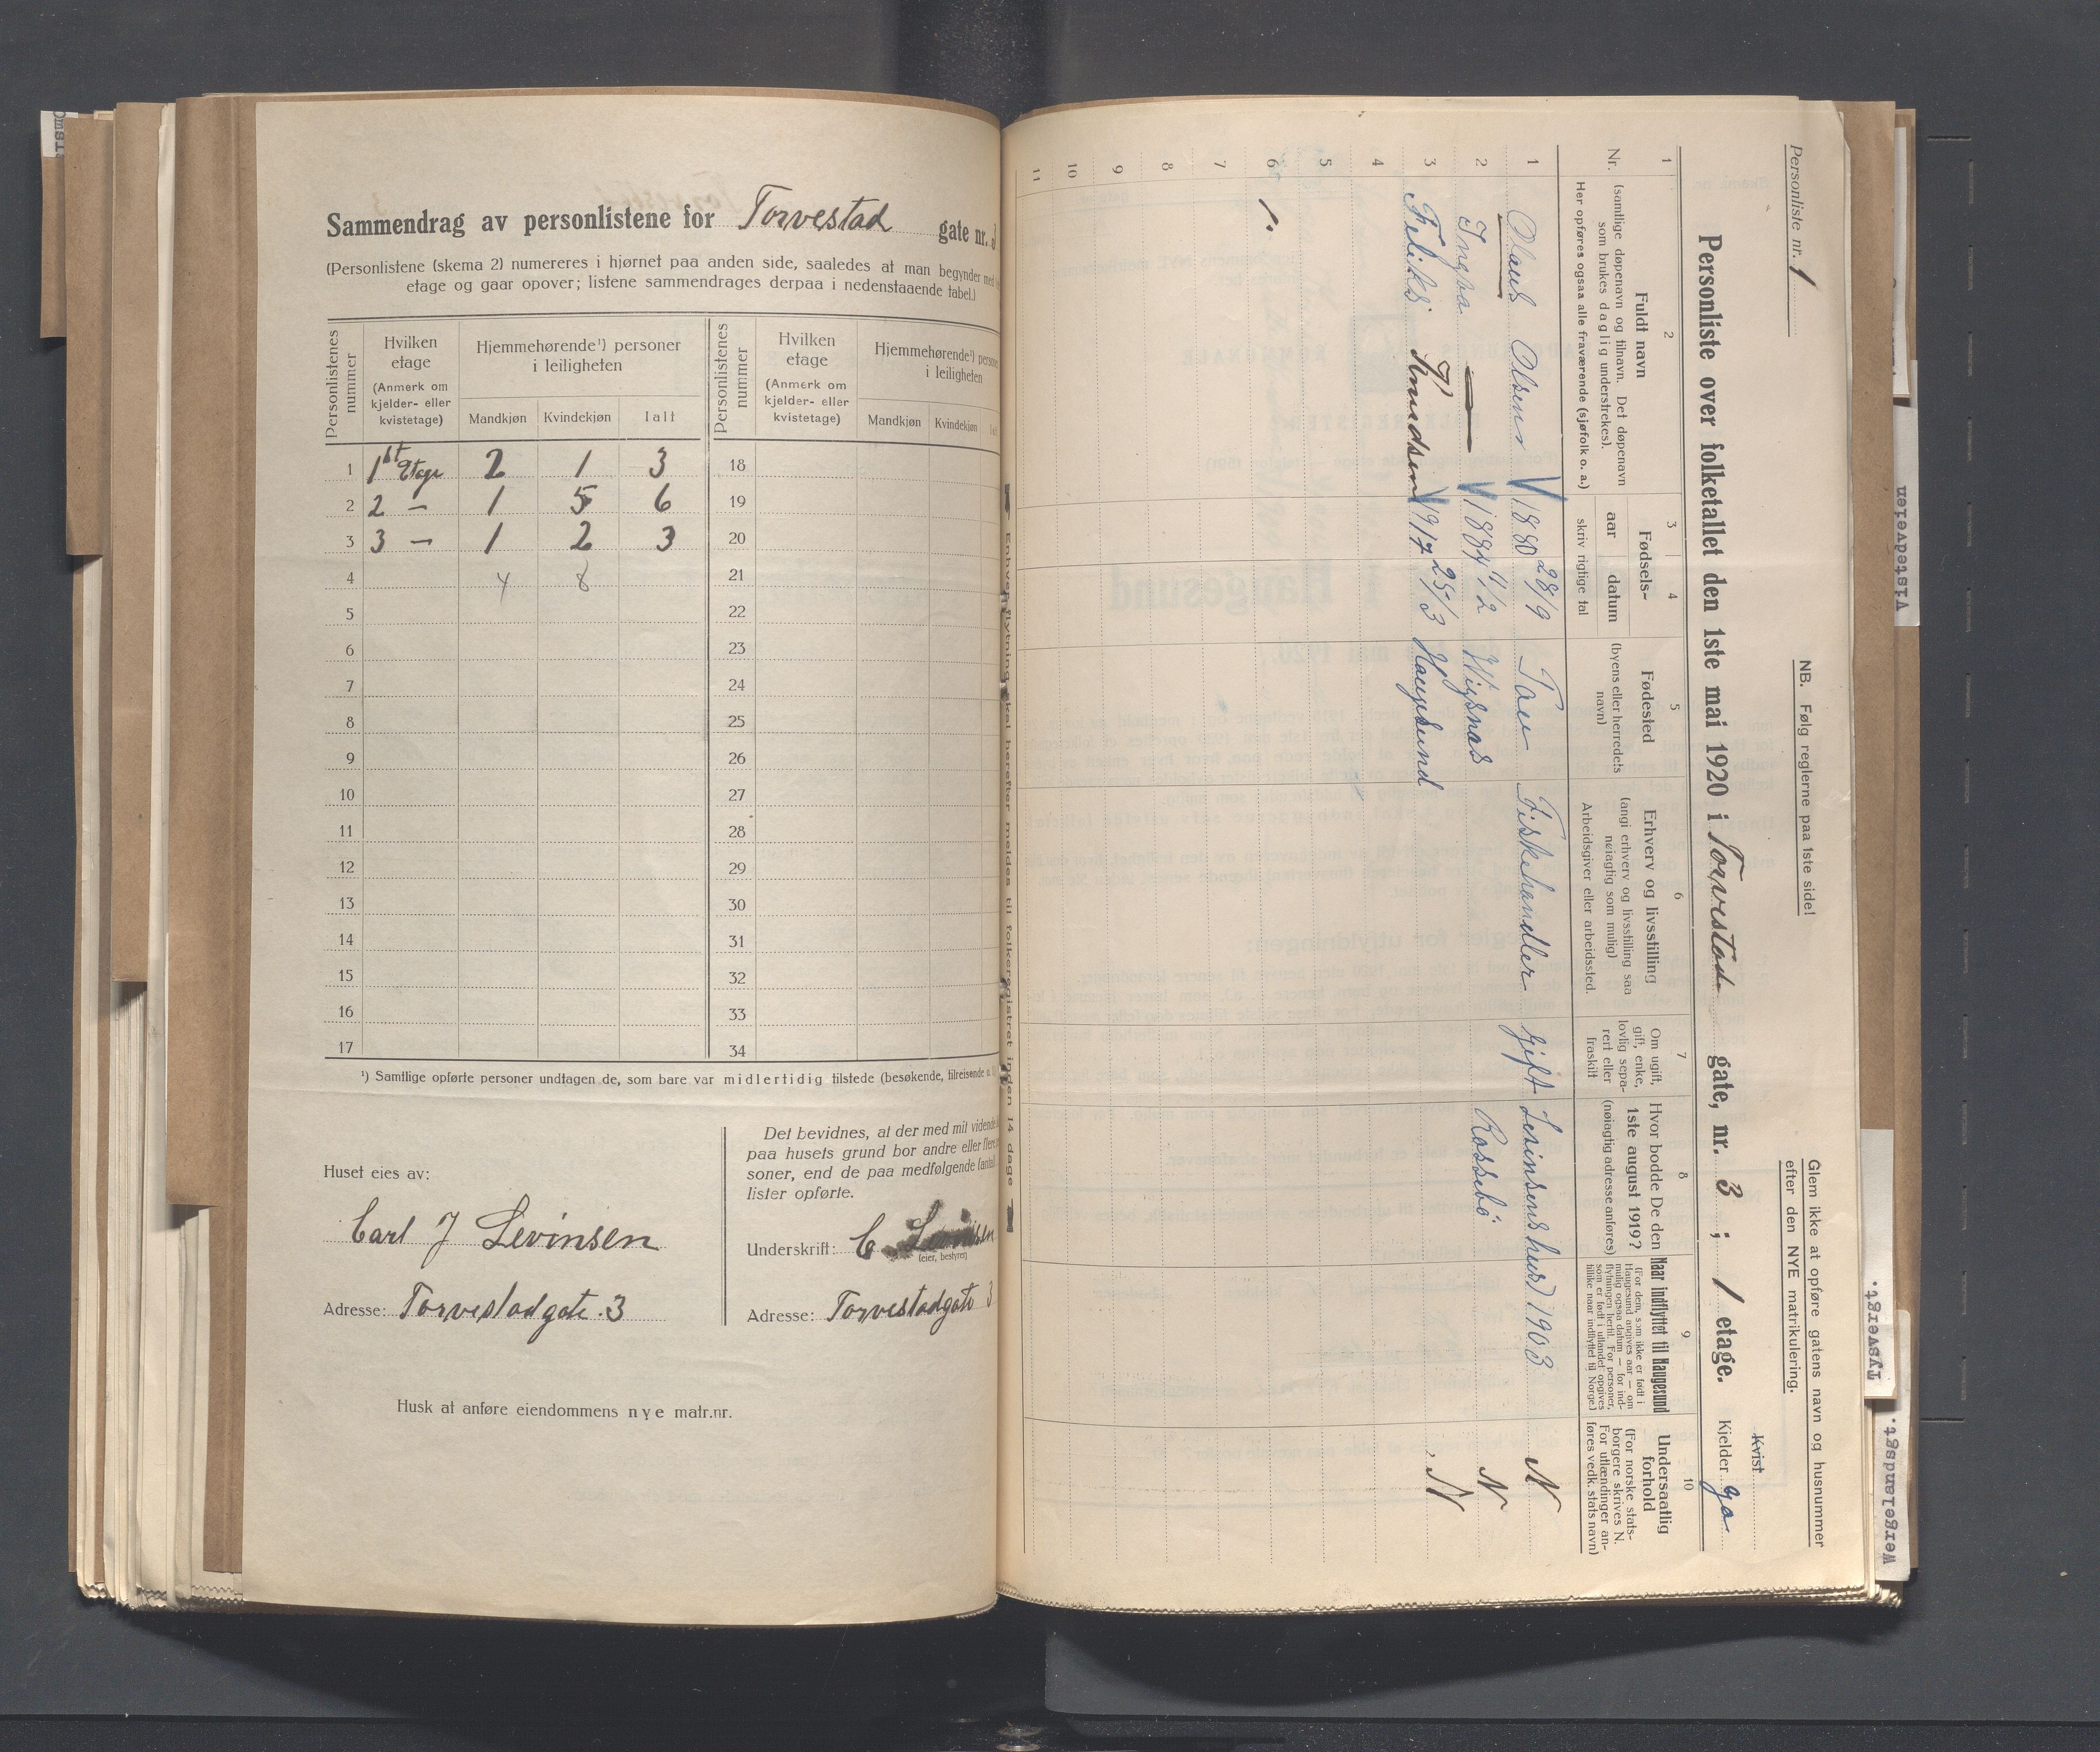 Sammendrag av personlistene for Torvestad gate nr. 3
(Personlistene (skema 2) numereres i hjørnet paa anden side, saaledes at man begynder med
etage og gaar opover; listene sammendrages derpaa i nedenstaaende tabel.)
Personlistenes nummer
Hvilken etage
(Anmerk om kjelder- eller kvistetage)
Hjemmehørende¹) personer i leiligheten
Mandkjøn Kvindekjøn Ialt
Personlistenes nummer
Hvilken etage
(Anmerk om kjelder- eller kvistetage)
Hjemmehørende¹) personer i leiligheten
Mandkjøn Kvindekjøn
1 1st Etage 2 1 3 18
2 2 — 1 5 6 19
3 3 — 1 2 3 20
4 4 8 21
5 22
6 23
7 24
8 25
9 26
10 27
11 28
12 29
13 30
14 31
15 32
16 33
17 34
¹) Samtlige opførte personer undtagen de, som bare var midlertidig tilstede (besøkende, tilreisende
Huset eies av:
Carl J Levinsen
Adresse: Torvestadgate. 3
Det bevidnes, at der med mit vidende
paa husets grund bor andre eller flere
soner, end de paa medfølgende (antal)
lister opførte.
Underskrift: C Levinsen
(eier, bestyrer)
Adresse: Torvestadgate 3
Husk at anføre eiendommens nye matr.nr.
Personliste nr. 1
NB. Følg reglerne paa 1ste side!
Glem ikke at opføre gatens navn og husnummer
efter den NYE matrikulering.
Personliste over folketallet den 1ste mai 1920 i Torvestad gate, nr. 3; 1 etage.
Kvist
Kjelder
1 2 3 4 5 6 7 8 9 10
Nr.
Fuldt navn
(samtlige døpenavn og tilnavn. Det døpenavn
som brukes daglig understrekes).
Her opføres ogsaa alle fraværende (sjøfolk o. a.)
Fødsels-
aar datum
skriv rigtige tal
Fødested
(byens eller herredets
navn)
Erhverv og livsstilling
(angi erhverv og livsstilling saa
nøiagtig som mulig)
Arbeidsgiver eller arbeidssted.
Om ugift,
gift, enke,
lovlig sepa-
rert eller
fraskilt
Hvor bodde De den
1ste august 1919?
(nøiagtig adresse anføres)
Naar indflyttet til Haugesund
(For dem, som ikke er født i
Haugesund angives aar — om
mulig ogsaa datum — for ind-
flytningen hertil. For personer,
som er født i utlandet opgives
tillike naar indflyttet til Norge.)
Undersaatlig
forhold
(For norske stats-
borgere skrives N.
For utlændinger an-
føres vedk. stats navn)
1 Olaus Olsen 1880 28/9 Tau Fiskehandler gift Levinsens hus 1903 N
2 Ingba — 1884 11/2 Wigsnæs Rossebö N
3 Feliks Knudsen 1917 25/3 Haugesund N
4
5
6 1.
7
8
9
10
11
Enhver flytning skal herefter meldes til folkeregistret inden 14 dage
Vistedveien
Tysvergt.
Wergelandsgt.